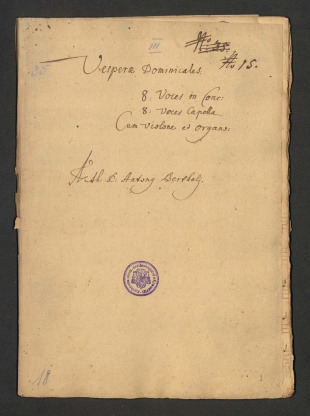 III
No 15.
Vesperæ Dominicales.
8. Voces in Conc:
8. Voces Capella
Cum Violone et Organo:
A Sth. D. Antony Berthaly.
18